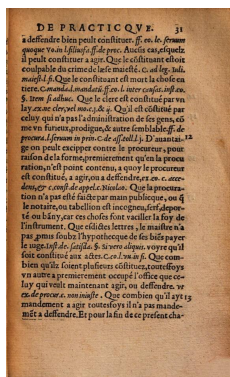 DE PRACTICQVE. 31
a deffendre bien peult constituer. ff. eo. le. seruum
quoque vo. in l. filius fa. ff. de proc. Aucūs cas, esquelz
il peult constituer a agir. Que le cōstituant est oit
coulpable du crime de læse maiesté. C. ad leg. Iuli.
maiest. l. fi. Que le constituant est mort la chose en
tiere. C. manda. l. mandatū. ff. eo. l. inter causas. inst. eo.
§. Item si adhuc. Que le clerc est constitué par vn
lay. ex. ne cler. vel mo. c. j. & 4. Qu'il est cōstitué par
celuy qui n'a pas l'administration de ses gens, cō
me vn furieux, prodigue, & autre semblable. ff. de
procura. l. seruum in prin. C. de assesso. l. j. D'auanta- 12
ge on peult exciper contre le procureur, pour
raison de la forme, premierement qu'en la procu
ration, n'est point contenu, a quoy le procureur
est constitué, a agir, ou a deffendre, ex. eo. c. acce-
dens, & c. const. de appel. c. Nicolao. Que la procura-
tion n'a pas esté faicte par main publicque, ou q̄
le notaire, ou tabellion est incogneu, serf, depor-
té ou bāny, car ces choses font vaciller la foy de
l'instrument. Que esdictes lettres, le maistre n'a
pas ꝓmis soubz l'hypothecque de ses biēs payer
le iuge. Inst. de. satisda. §. Si vero aliquis. voyre qu'il
soit constitué aux actes. C. eo. l. vn. in fi. Que com-
bien qu'ilz soient plusieurs cōstituez, toutesfoys
vn autre a premierement occupé l'office que ce-
luy qui veult maintenant agir, ou deffendre. vt
ex. de procur. c. non iniuste. Que combien qu'il ayt 13
mandement a agir toutesfoys il n'a pas mande-
mēt a deffendre. Et pour la fin de ce present cha-